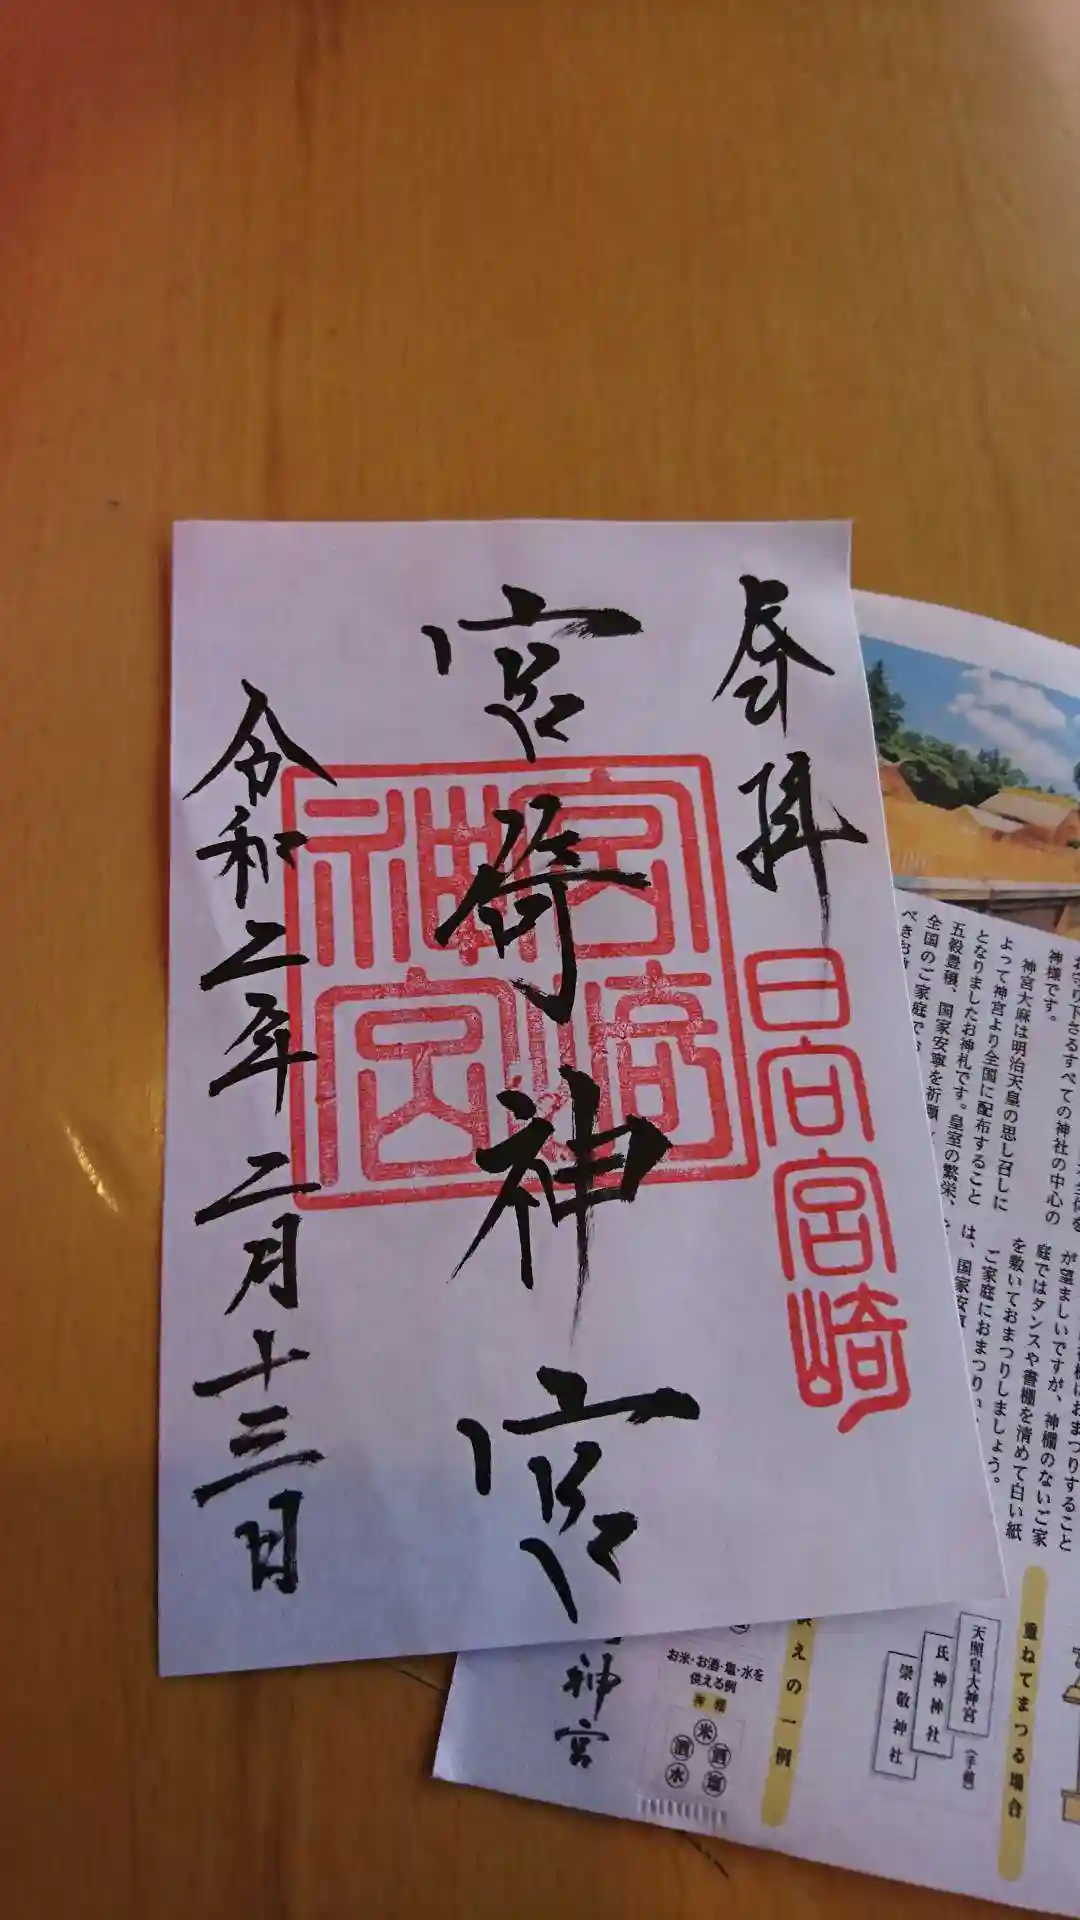 奉拝
日向宮崎
宮崎神宮
宮崎神宮
令和二年二月十三日
神様です。
神宮大麻は明治天皇の思し召しに
よって神宮より全国に配布すること
となりましたお神札です。皇室の繁栄、
五穀豊穣、国家安寧を祈願し
全国のご家庭でお
が望ましいですが、神棚のないご家
庭ではタンスや書棚を清めて白い紙
を敷いておまつりしましょう。
ご家庭におまつりい
は、国家安寧
重ねてまつる場合
天照皇大神宮
(手前)
氏神神社
崇敬神社
供えの一例
お米・お酒・塩・水を
供える例
米
酒
酒
水
塩
神宮